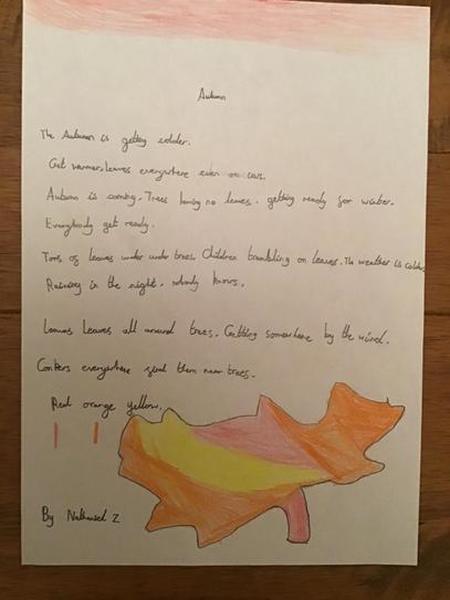 Autumn
The Autumn is getting colder.
Get warmer, leaves everywhere even on cars.
Autumn is coming. Trees having no leaves. getting ready for winter.
Everybody get ready.
Tons of leaves under under trees. Children trembling on leaves. The weather is colder
Raining in the night. nobody knows.
Leaves leaves all around trees. Getting somewhere by the wind.
Conkers everywhere find them near trees.
Red orange yellow.
By Nathaniel Z